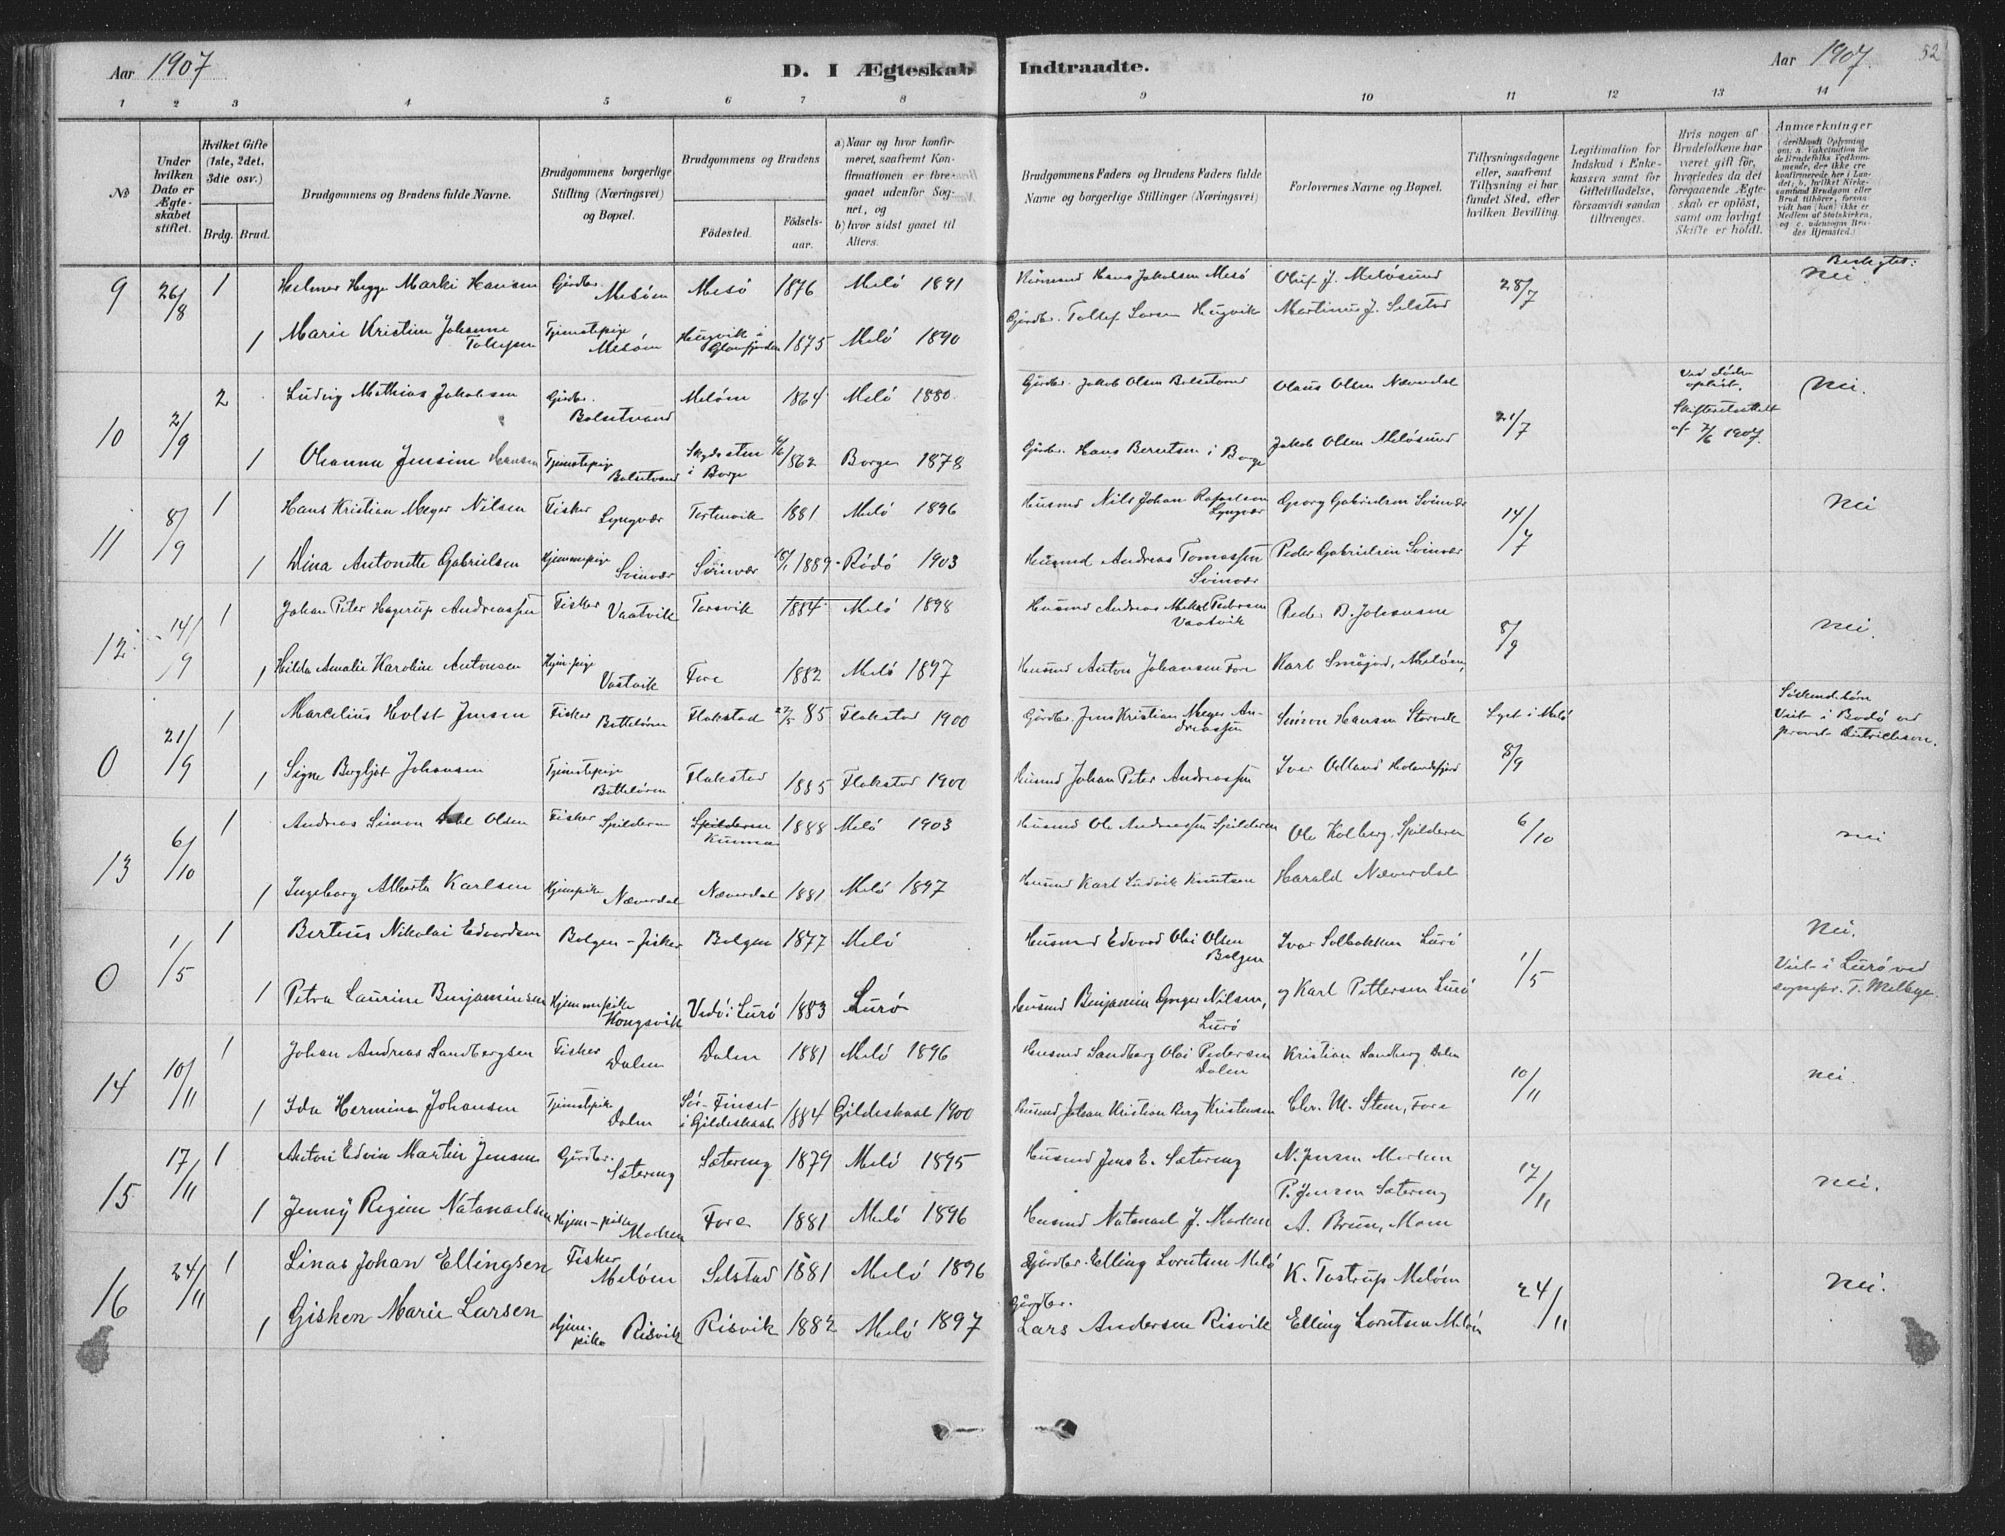 Aar 1907
D. I Ægteskab Indtraadte.
Aar 1907. 52
1 2 3 4 5 6 7 8 9 10 11 12 13 14
No
Under hvilken Dato er Ægteskabet stiftet.
Hvilket Gifte (1ste, 2det, 3die osv.)
Brdg. Brud.
Brudgommens og Brudens fulde Navne.
Brudgommens borgerlige Stilling (Næringsvei) og Bopæl.
Brudgommens og Brudens
Fødested. Fødselsaar.
a) Naar og hvor konfirmeret, saafremt Konfirmationen er foregaaet udenfor Sognet, og
b) hvor sidst gaaet til Alters.
Brudgommens Faders og Brudens Faders fulde Navne og borgerlige Stillinger (Næringsvei)
Forlovernes Navne og Bopæl.
Tillysningsdagene eller, saafremt Tillysning ei har fundet Sted, efter hvilken Bevilling.
Legitimation for Indskud i Enkekassen samt for Giftetilladelse, forsaavidt saadan tiltrænges.
Hvis nogen af Brudefolkene har været gift før, hvorledes da det foregaaende Ægteskab er opløst, samt om lovligt Skifte er holdt.
Anmærkninger
9 26/8 1 Helmer Hegge Marki Hansen Gårdbr. Meløen Mesø 1876 Melö 1891 Kårmand Hans Jakobsen Mesö Oluf J. Melösund 28/7 Beslegtet: Nei.
1 Marie Kristine Johanne Tollefsen Tjenestepige Meløen Haugvik i Glomfjorden 1875 Melö 1890 Gårdbr. Tollef Larsen Haugvik Martinus J. Selstad
10 2/9 2 Ludvig Mathias Jakobsen Gårdbr. Bolsetvand Meløen 1864 Melö 1880. Gårdbr. Jakob Olsen Bolsetvand Olaus Olsen Næverdal 21/7 Ved død opløst. Skifteretsattest af 7/6 1907. Nei.
1 Oleanna Jensine Hansen Tjenestepige Bolsetvand i Borge /862 Borge 1878 Gårdbr. Hans Berntsen i Borge Jakob Olsen Melösund
11 8/9 1 Hans Kristian Meyer Nilsen Fisker Lyngvær Tortenvik 1881 Melö 1896 Husmd Nils Johan Rafaelsen Lyngvær Georg Gabrielsen Svinvær 14/7 Nei
1 Dina Antonette Gabrielsen Hjemmepige Svinvær Svinvær 1889 Rödö 1903 Husmd Andreas Tomassen Svinvær Peder Gabrielsen Svinvær
12 14/9 1 Johan Peter Hagerup Andreassen Fisker Vaatvik Torsvik 1884 Melö 1898 Husmd Andreas Mekal Pedersen Vaatvik Peder B. Johansen 8/9 Nei.
1 Hilda Amalie Karoline Antonsen Hjem.pige Vaatvik Fore 1882 Melö 1897 Husmd Anton Johansen Fore Karl Småjord, Meløen,
0 21/9 1 Marcelius Holst Jensen Fisker Flakstad 27/5 85 Flakstad 1900 Gårdbr. Jens Kristian Meyer Andreassen Simon Hansen Storvik Lyst i Melö 8/9 Søskendebørn Viet i Bodö ved provst
1 Signe Bergljot Johansen Tjenestepige Flakstad 1885 Flakstad 1900 Husmd Johan Peter Andreassen Iver Holandsfjord
13 6/10 1 Andreas Simon Dahl Olsen Fisker Spilderen Spilderen Kunna 1888 Melö 1903 Husmd Ole Andreassen Spilderen Ole Kolberg, Spilderen 6/10 nei
1 Ingeborg Alberta Karlsen Hjempike Næverdal Næverdal 1881 Melö 1897 Husmd Karl Ludvik Knutsen Harald Næverdal
0 1/5 1 Berteus Nikolai Edvardsen Bolgen - fisker Bolgen 1877 Melö Husmd Edvard Olai Olsen Bolgen Ivar Solbakken Lurö 1/5 Nei.
1 Petra Laurine Benjaminsen Hjemmepike Kongsvik i Lurö 1883 Lurö Husmd Benjamin Greger Nilsen, Lurö og Karl Pettersen Lurö Viet i Lurö ved sognepr. T. Melbye.
14 10/11 1 Johan Andreas Sandbergsen Fisker Dalen Dalen 1881 Melö 1896 Husmd Sandberg Olai Pedersen Dalen Kristian Sandberg Dalen 10/11 nei.
1 Ida Hermine Johansen Tjenestepike Dalen Sør-Finset i Gildeskaal 1884 Gildeskaal 1900 Husmd Johan Kristian Berg Kristensen Chr. M. Steen, Fore
15 17/11 1 Anton Edvin Martin Jensen Gårdbr. Sætereng Sætereng 1879 Melö 1895 Husmd Jens E. Sætereng N. Jensen Marken P. Jensen Sætereng 17/11 Nei.
1 Jenny Regine Natanaelsen Hjem-pike Marken Fore 1881 Melö 1896 Husmd Natanael J. Marken A. Bruun, Moen
16 24/11 1 Linas Johan Ellingsen Fisker Meløen Selstad 1881 Melö 1896 Gårdbr. Elling Lorntsen Melö K. Tostrup Meløen 24/11 Nei.
1 Gisken Marie Larsen Hjem.pike Risvik Risvik 1882 Melö 1897 Gårdbr. Lars Andersen Risvik Elling Lorntsen Meløen